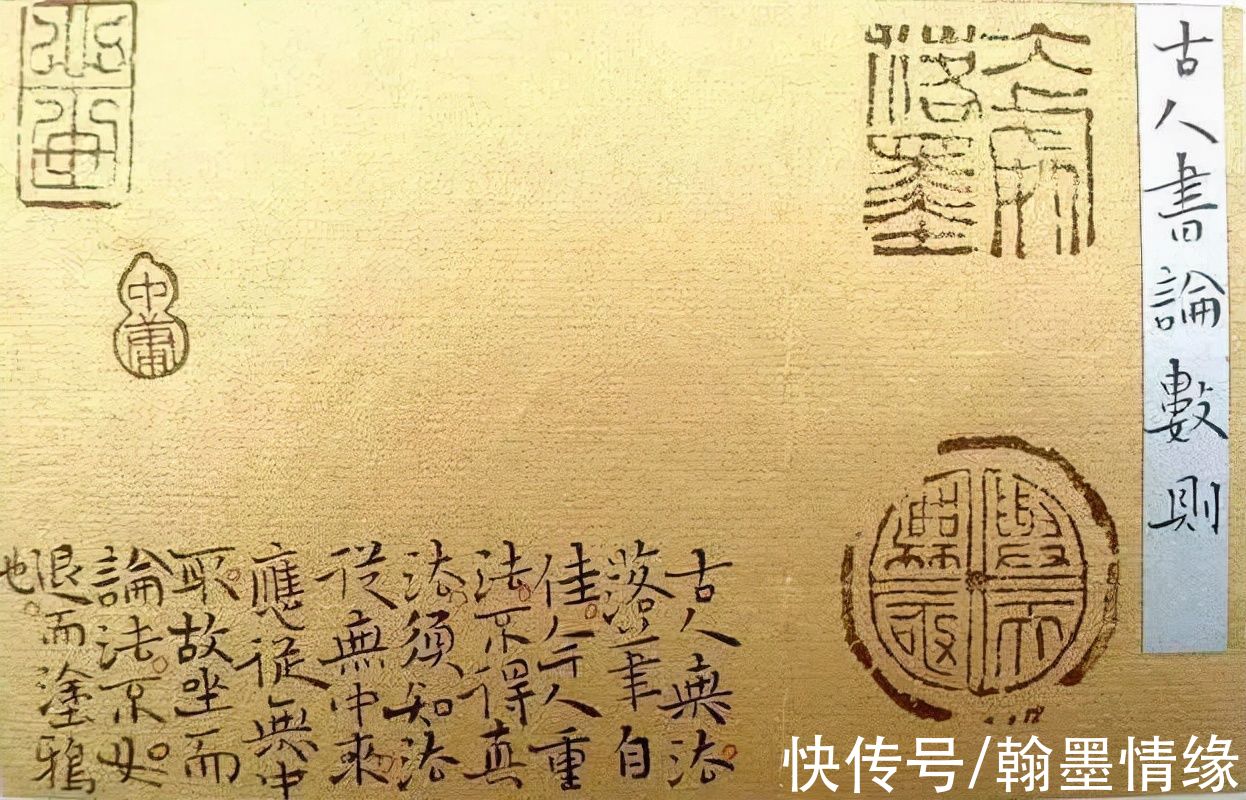 古人書論數則
落墨
與天無極
古人無法。
落筆自
佳。今人重
法。不得真
法。須知法
從無中來
應從無中
取。故坐而
論法。不如。
退而塗鴉
也。
快传号/翰墨情缘